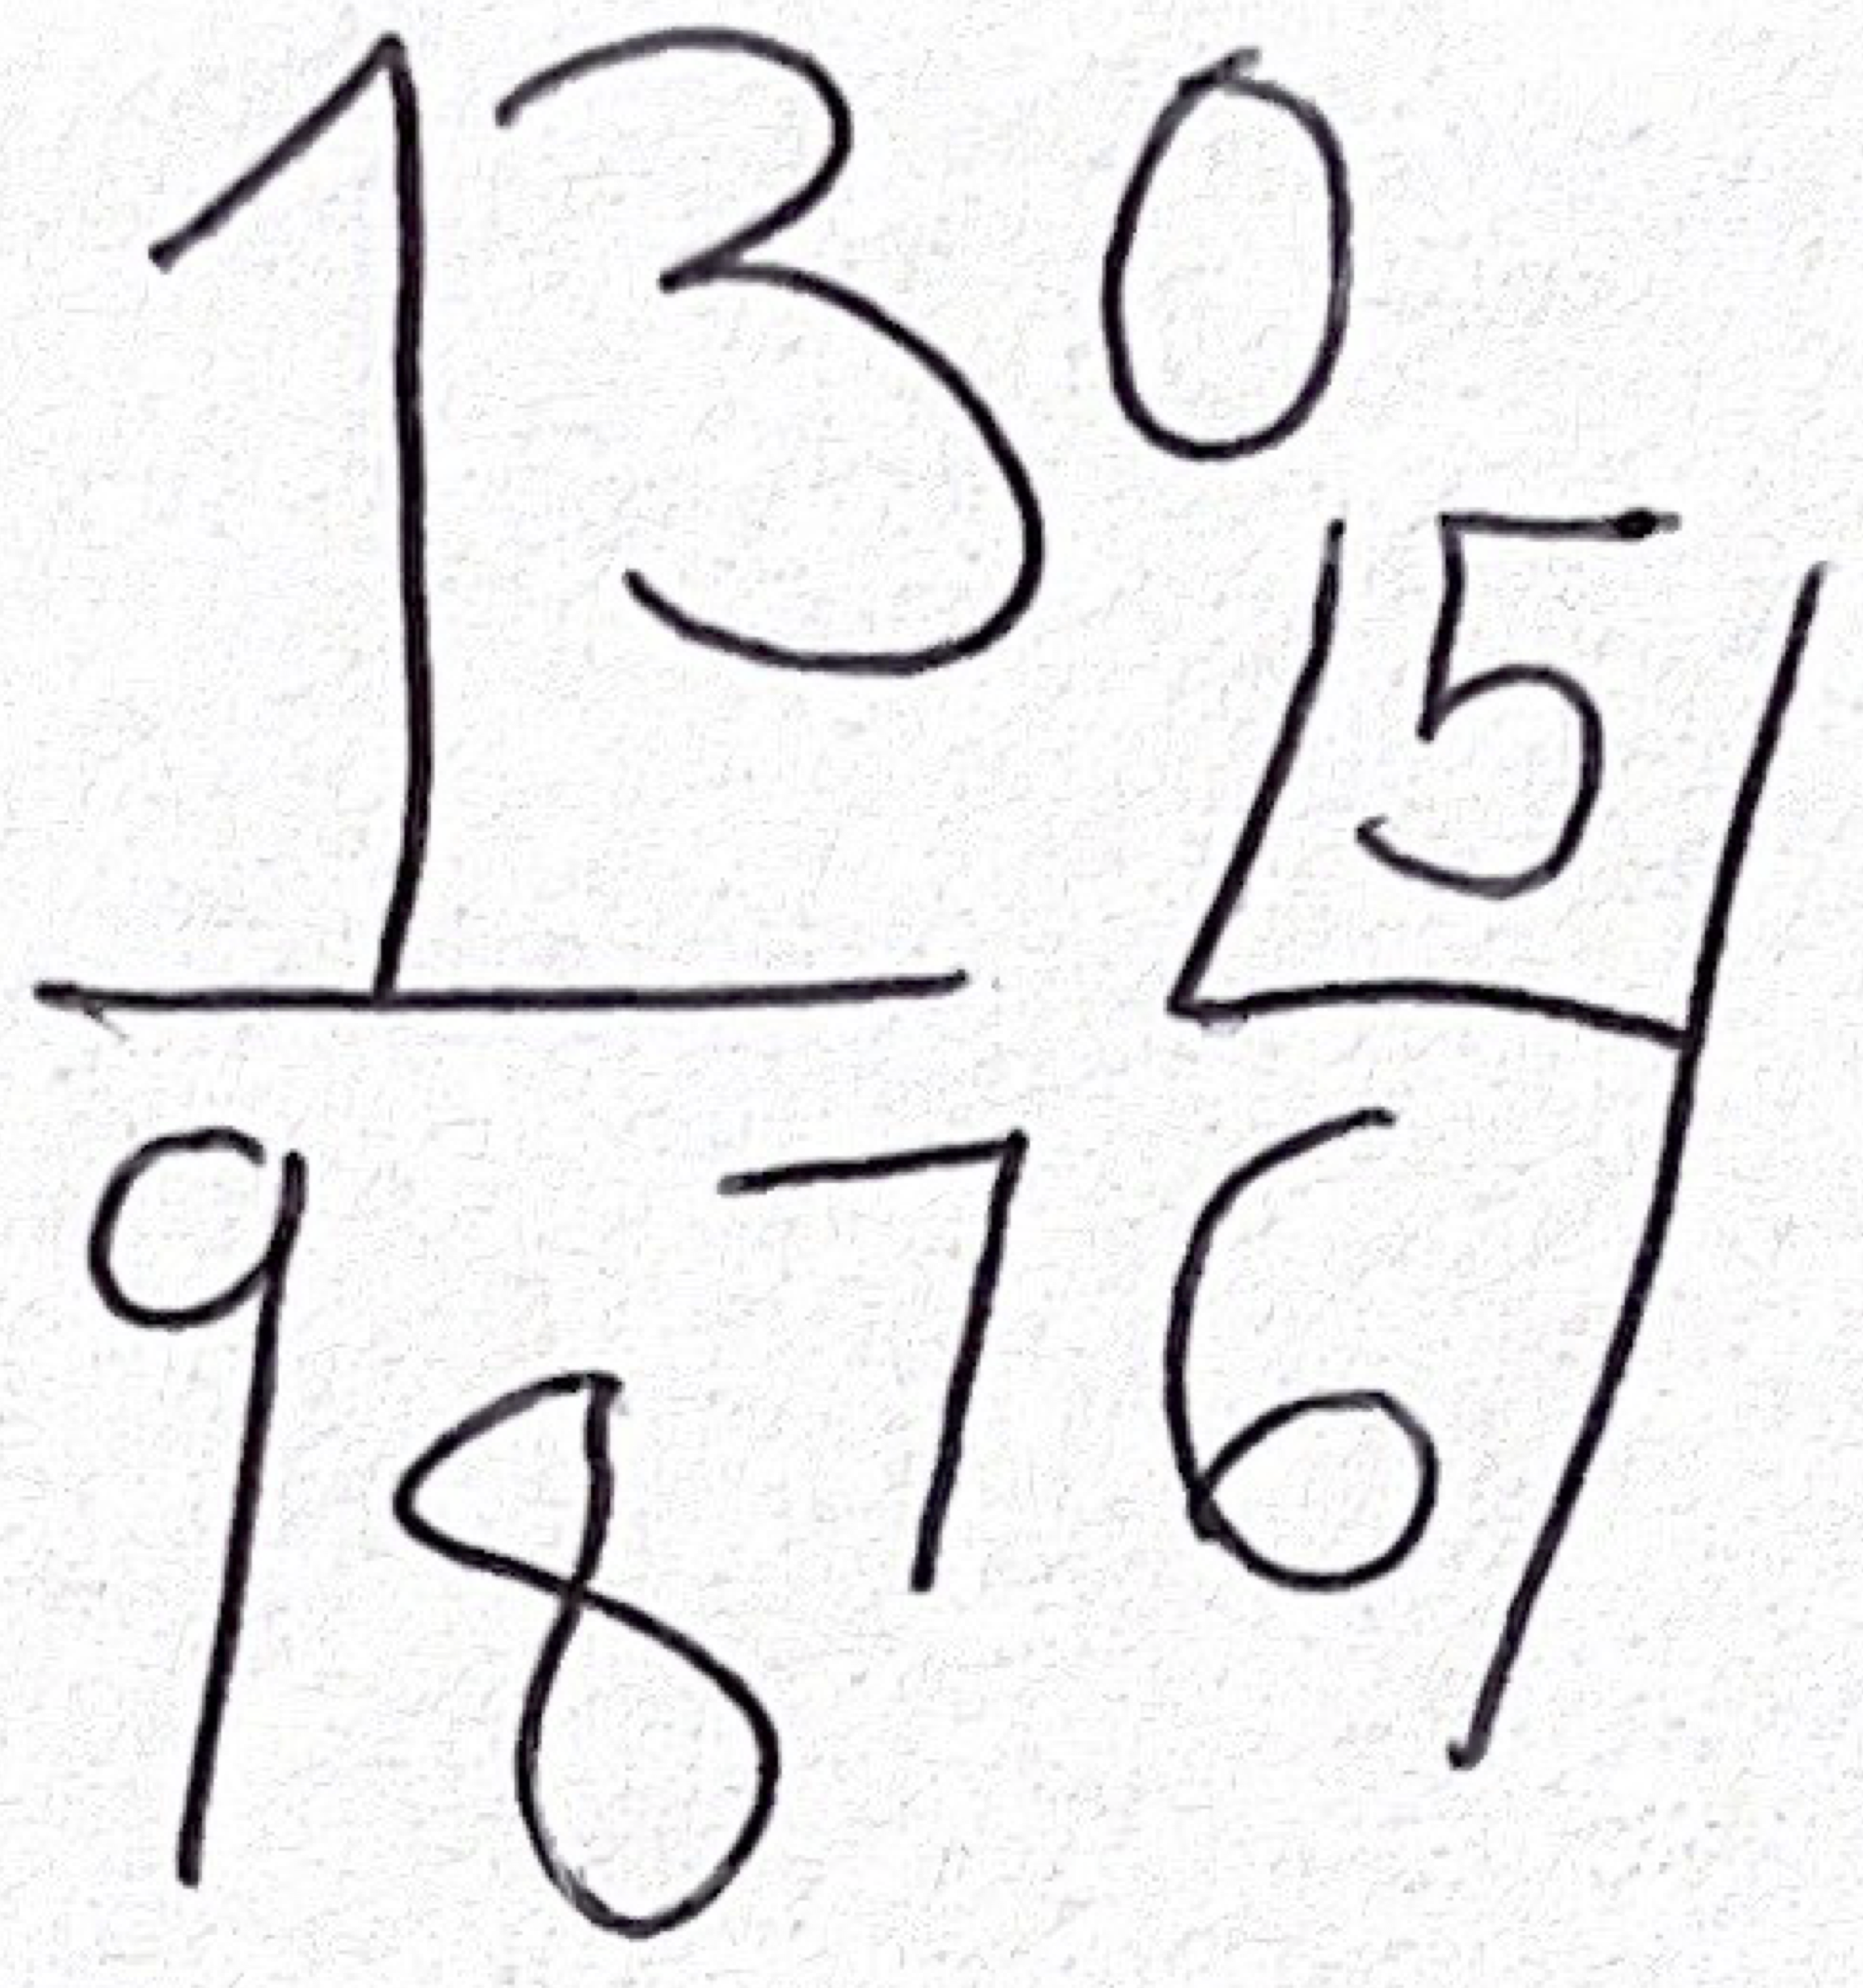 130
45
9876